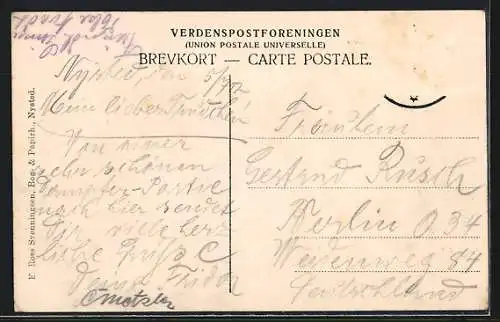 VERDENSPOSTFORENINGEN
(UNION POSTALE UNIVERSELLE)
BREVKORT — CARTE POSTALE.
F. Rosa Svenningsen, Bog- & Papirh., Nysted.
Nysted, den
5/7 12
Mein liebes Trudchen
Von einer
sehr schönen
Dampfer-Partie
nach hier sendet
Dir viele herz
liche Grüße
Fridor
Fräulein
Gertrud Rusch
Berlin O 34
Weidenweg 84
Deutschland